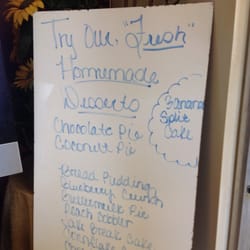 Try Our "Fresh"
Homemade
Desserts
Chocolate Pie
Coconut Pie
Banana
Split
Cake
Bread Pudding
Blueberry Crunch
Buttermilk Pie
Peach Cobbler
Cake